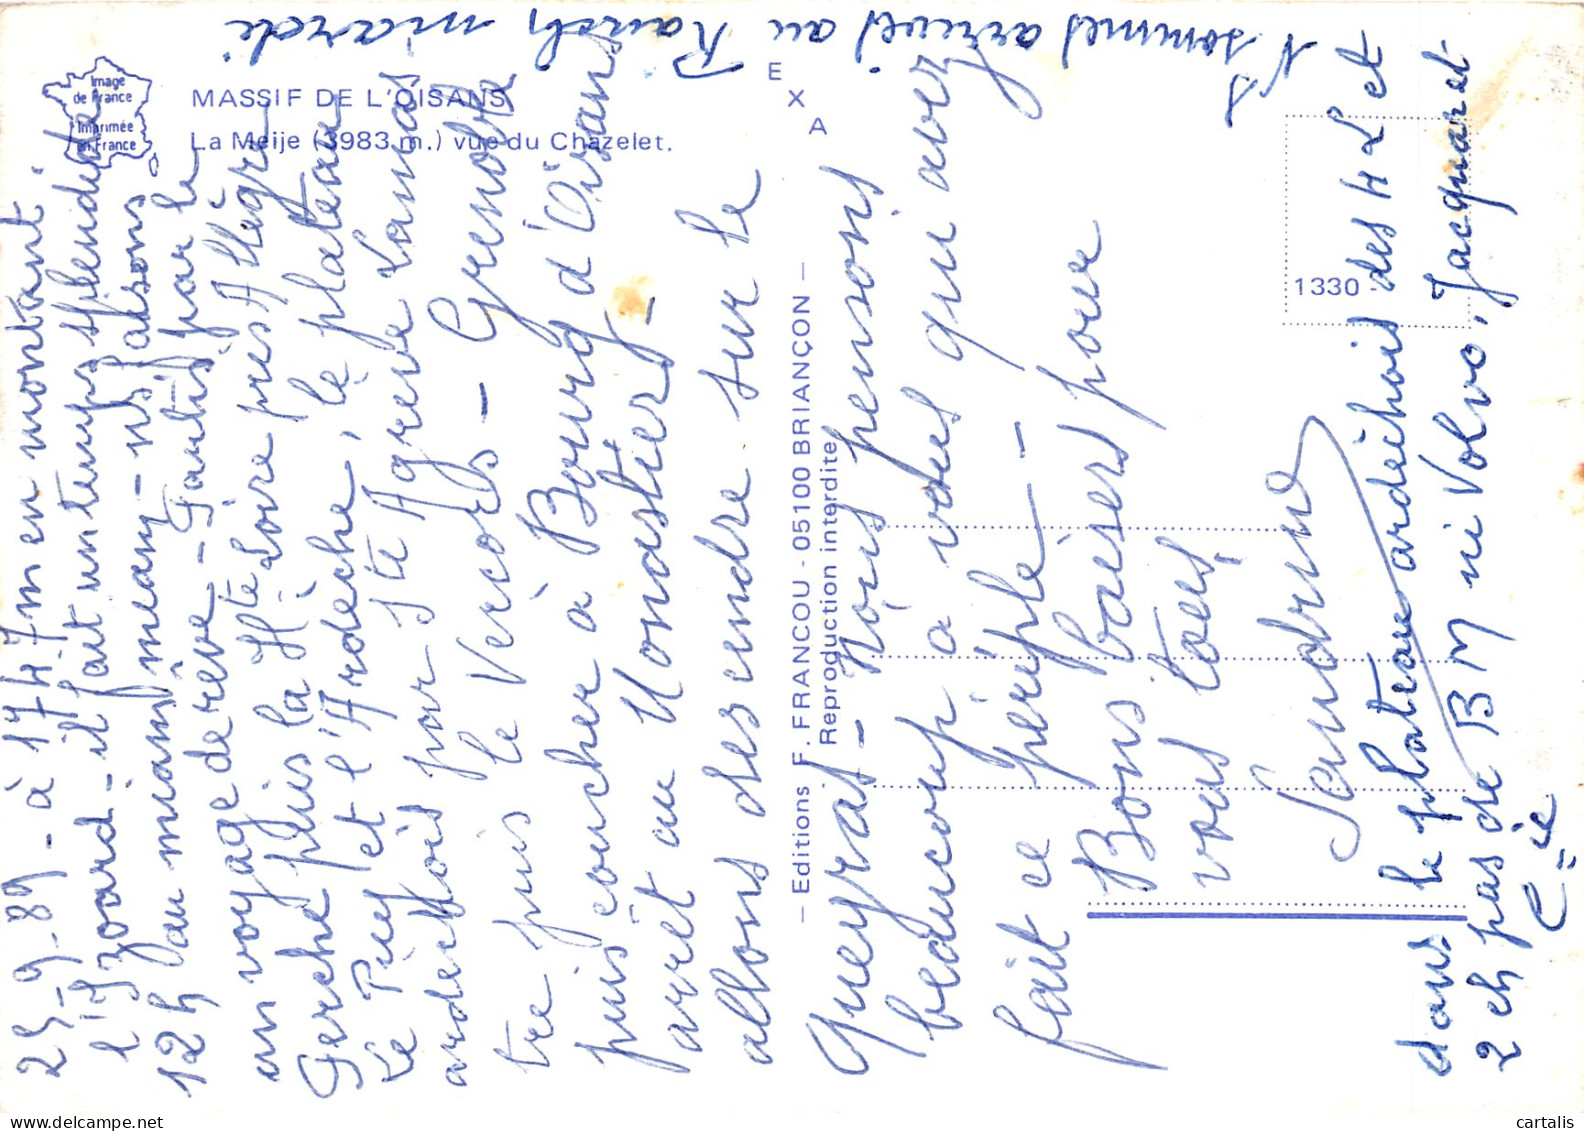 Image
de France
Imprimée
en France
MASSIF DE L'OISANS
La Meije (3983 m.) vue du Chazelet.
E
X
A
1330
— Editions F. FRANCOU - 05100 BRIANÇON —
Reproduction interdite
25-9-89 - à 1747m en montant
l'Izoard - il fait un temps splendide
12h au miam miam - ns faisons
un voyage de rêve - Partis par le
Perche puis la Hte Loire près Allègre
Le Puy et l'Ardèche, le plateau
ardechois par St Agrève Lamas
tre puis le Vercors - Grenoble
puis coucher à Bourg d'Oisans
arrêt au Monastier -
allons descendre sur le
Queyras - Nous pensons
beaucoup à vous qui avez
fait ce périple -
Bons baisers pour
vous toles,
Sandrine
N sommes arrivés au Ranch mardi
dans le plateau ardéchois des 4 L et
2 ch pas de BM ni Volvo, Jacquaret
Cie